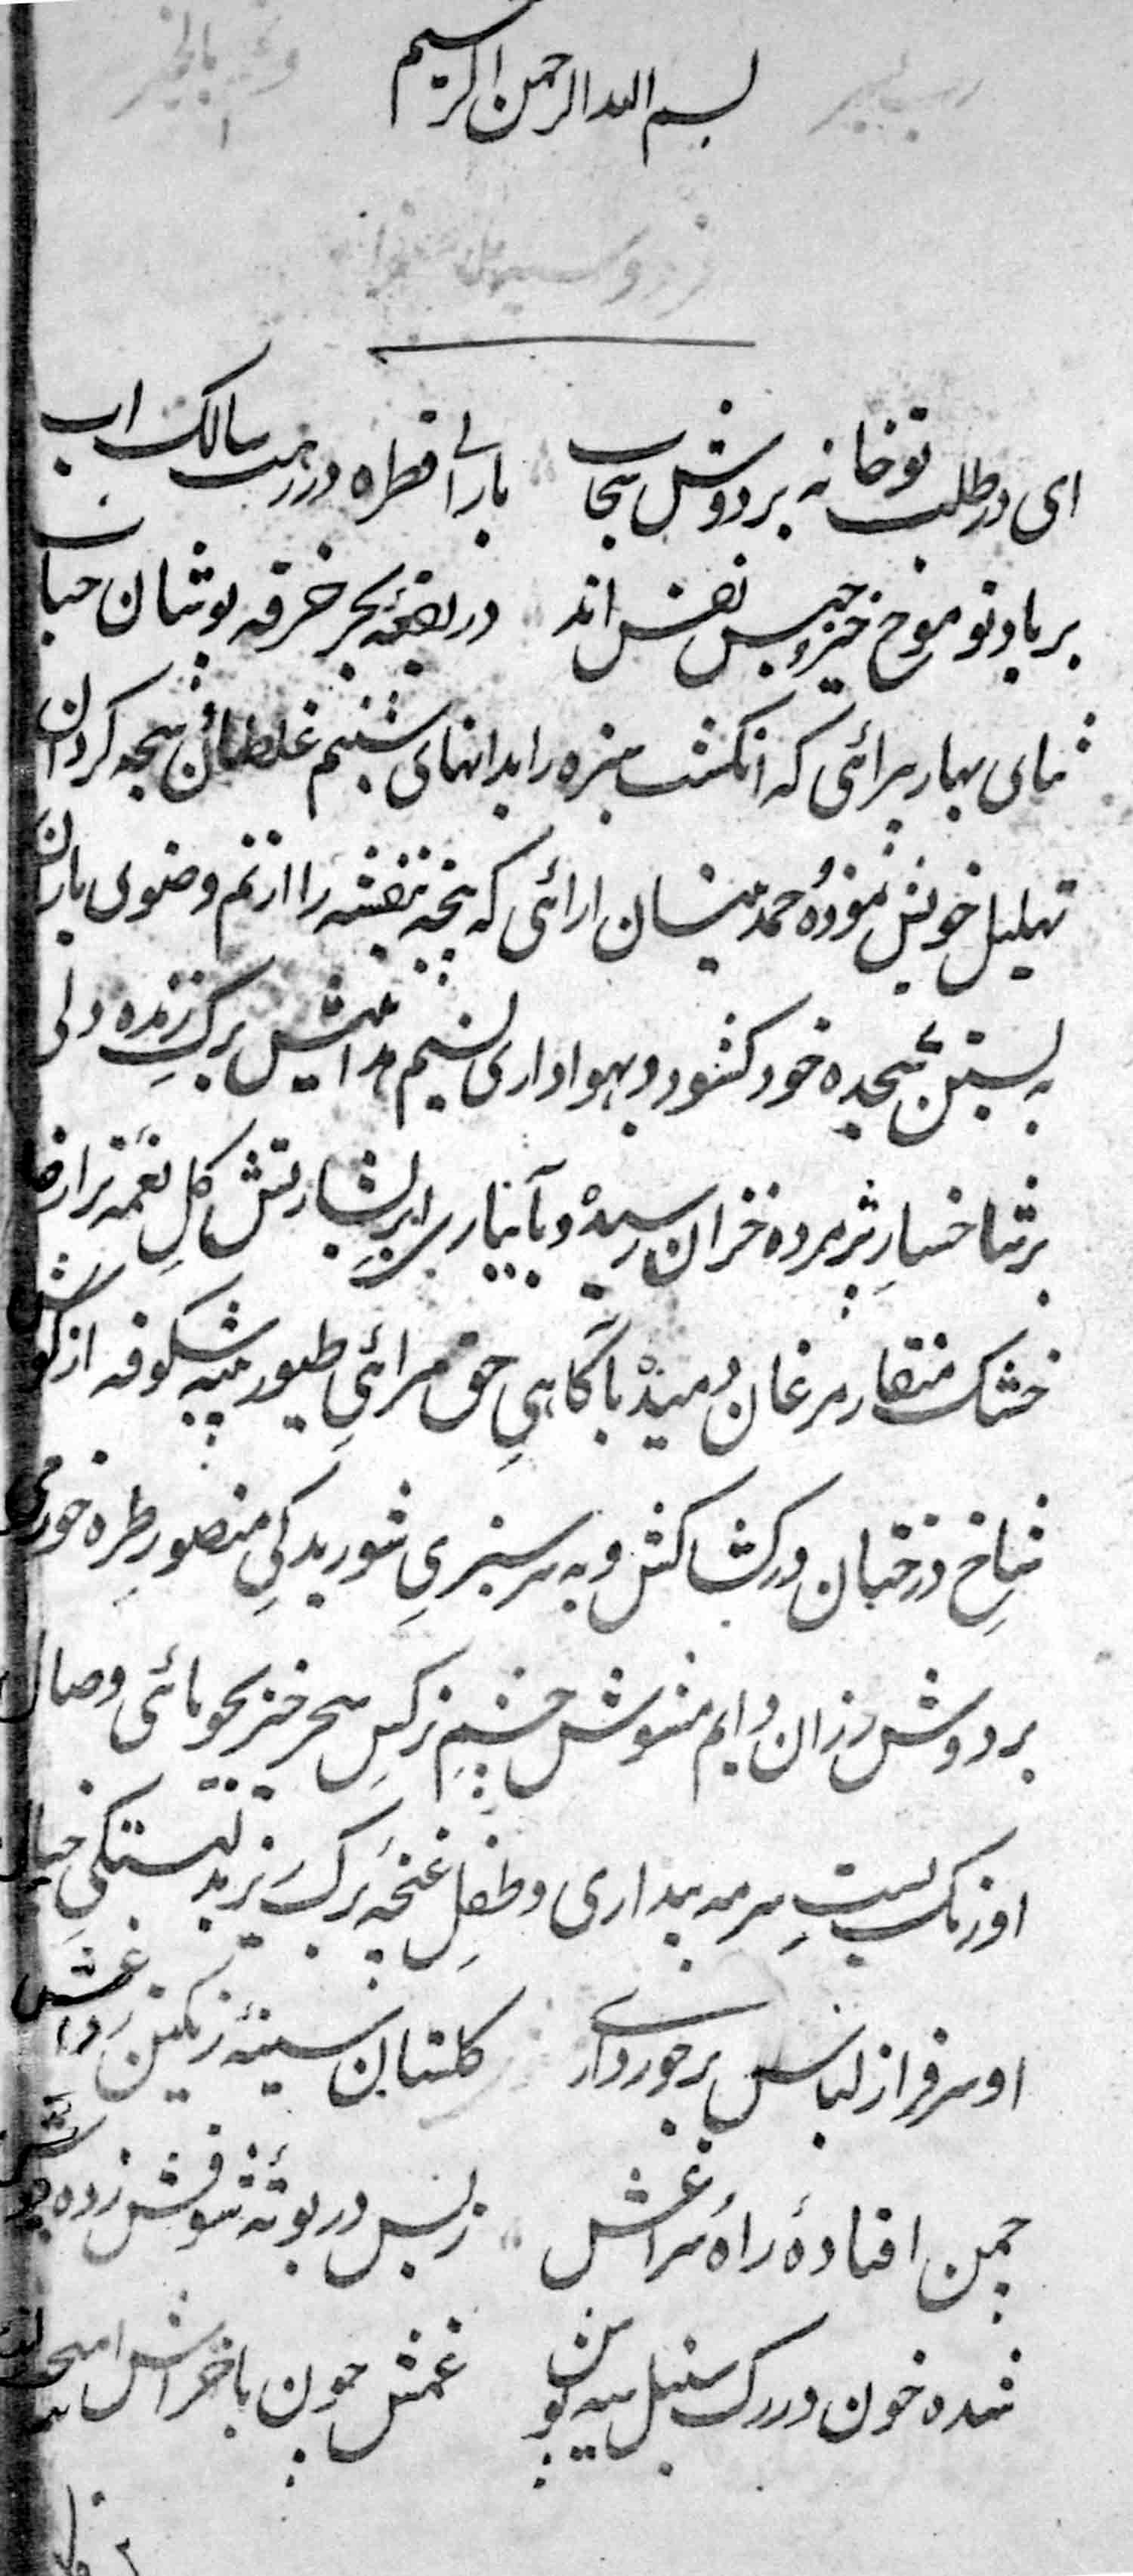 رب یسر
بسم الله الرحمن الرحیم
وتمم بالخیر
ای در طلبت تو خانه بر دوش سحاب با بارانی قطره در رهت سالک اب
بر یاد تو موج خیز و حبس نفس اند در بقعهٔ بحر خرقه پوشان حباب
ثنای بهار پیرائی که انکشت سبزه را بدانهای شبنم غلطان سبحه کردان
تهلیل خویش نمودهٔ حمد نیسان ارائی که پنجه بنفشه را از نم وضوی باران
به بستن سجده خود کشود و بهواداری نسیم هدایتش برکِ زنده دلی
بر شاخسارِ پژمرده خزان رسیده و بآبیاری ابر بشارتش کلِ نغمه تر از
خشک منقار مرغان دمیده بآکاهیِ حق سرائیِ طیور پنبه شکوفه از کوش
شاخِ درختان در کشاکش و به سرسبزیِ شوریدکیِ منصور طره خود
بر دوش رزان دایم مشوش چشمِ نرکسِ سحر خیز بجویائی وصال
او نمک بستِ سرمه بیداری و طفلِ غنچه برک ریز بدلبستکیِ خیال
او سرفراز لباس برخورداری کلستان سینهٔ رنکین ز داغش
چمن افتادهٔ راه سراغش ز بس در بوتهٔ شوقش زده جوش
شده خون در رک سنبل سیه پوش غمش چون با خراش